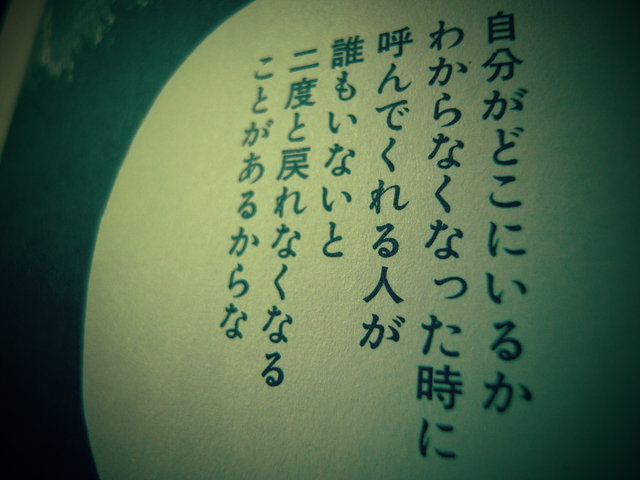 自分がどこにいるか
わからなくなった時に
呼んでくれる人が
誰もいないと
二度と戻れなくなる
ことがあるからな